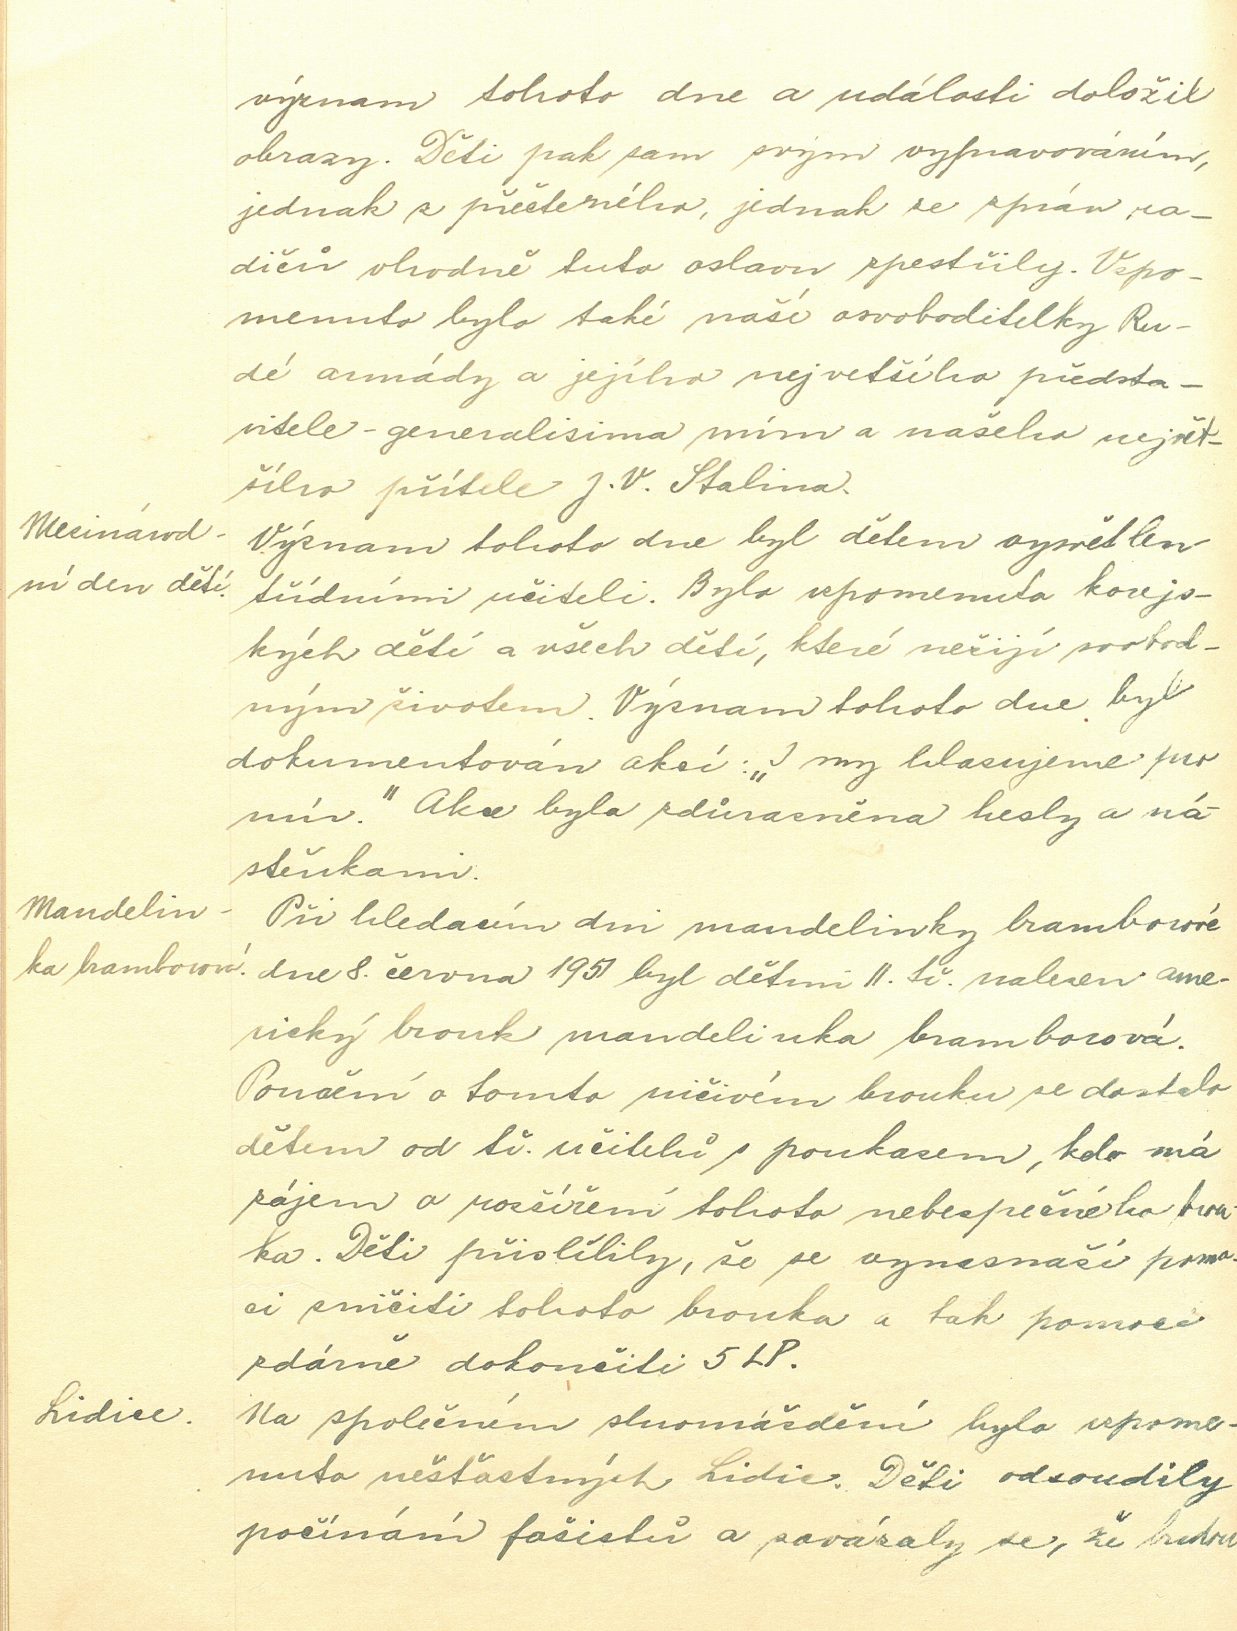 význam tohoto dne a události doložil
obrazy. Děti pak sam svým vypravováním,
jednak z přečteného, jednak ze zpráv ro-
dičů vhodně tuto oslavu zpestřily. Vzpo-
menuto bylo také naší osvoboditelky Ru-
dé armády a jejího největšího předsta-
vitele - generalisima mím a našeho největ-
šího přítele J. V. Stalina.
Mezinárod-
ní den dětí.
Význam tohoto dne byl dětem vysvětlen
třídními učiteli. Bylo vzpomenuto korejs-
kých dětí a všech dětí, které nežijí svobod-
ným životem. Význam tohoto dne byl
dokumentován akcí: „I my hlasujeme pro
mír." Akce byla zdůrazněna hesly a ná-
stěnkami.
Mandelin-
ka bramborová.
Při hledacím dni mandelinky bramborové
dne 8. června 1951 byl dětmi II. tř. nalezen ame-
rický brouk mandelinka bramborová.
Poučení o tomto ničivém brouku se dostalo
dětem od tř. učitelů s poukazem, kdo má
zájem o rozšíření tohoto nebezpečného brou-
ka. Děti přislíbily, že se vynasnaží pomo-
ci zničiti tohoto brouka a tak pomoci
zdárně dokončiti 5 LP.
Lidice.
Na společném shromáždění bylo vzpome-
nuto nešťastných Lidic. Děti odsoudily
počínání fašistů a zavázaly se, že budou